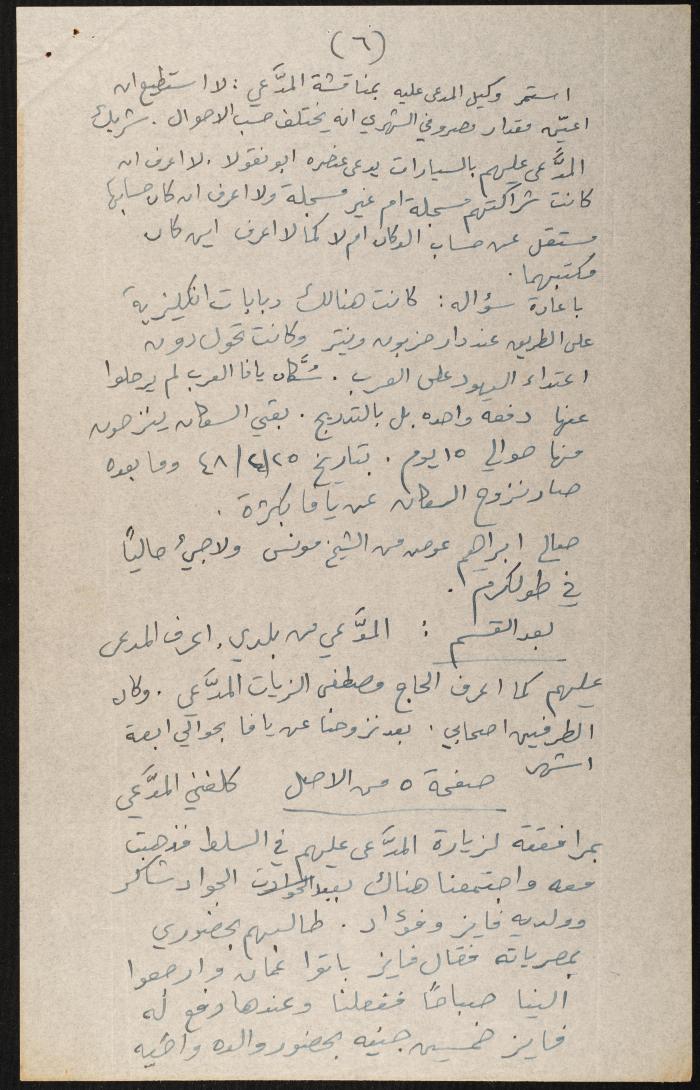 (٦)
استمر وكيل المدعى عليه بمناقشة المدَّعي: لا استطيع ان
اعيّن مقدار مصروفي الشهري انه يختلف حسب الاحوال. شريك
المدَّعى عليهم بالسيارات يدعى خضره ابو نقولا. لا اعرف ان
كانت شراكتهم مسجلة ام غير مسجلة ولا اعرف ان كان حسابها
مستقل عن حساب الدكان ام لا كما لا اعرف اين كان
مكتبهما.
باعادة سؤاله: كانت هنالك دبابات انكليزية
على الطريق عند دار حزبون ونيتر وكانت تحول دون
اعتداء اليهود على العرب. سُكَّان يافا العرب لم يرحلوا
عنها دفعه واحده بل بالتدريج. بقي السكان ينزحون
منها حوالي ١٥ يوم. بتاريخ ٢٥/٤/٤٨ وما بعده
صار نزوح السكان عن يافا بكثرة.
صالح ابراهيم عوض من الشيخ مونس ولاجيء حالياً
في طولكرم.
بعد القسم: المدَّعي من بلدي. اعرف المدعى
عليهم كما اعرف الحاج مصطفى الزيات المدَّعي. وكان
الطرفين اصحابي. بعد نزوحنا عن يافا بحوالي ابعة
اشهر صفحة ٥ من الاصل كلفني المدَّعي
بمرافقته لزيارة المدَّعى عليهم في السلط فذهبت
معه واجتمعنا هناك الجواد شاكر
وولديه فايز وفؤاد. طالبهم بحضوري
بمصرياته فقال فايز باتوا عمان وارجعوا
الينا صباحاً ففعلنا وعندها دفع له
فايز خمسين جنيه بحضور والده واخيه